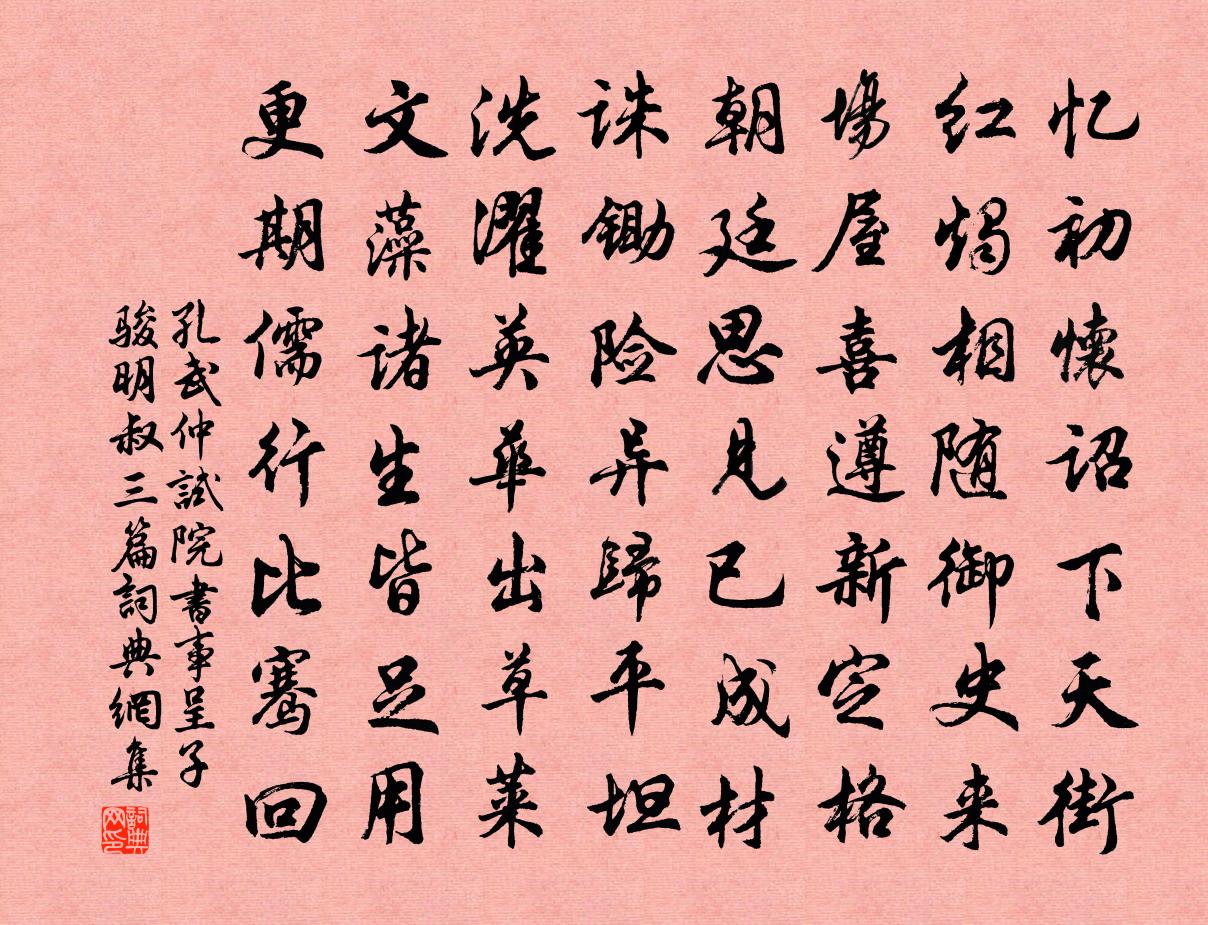 忆初懷诏下天街
红燭相随御史来
場屋喜遵新定格
朝廷思見已成材
诛锄险异歸平坦
洗濯英華出草莱
文藻诸生皆足用
更期儒行比骞回
孔武仲試院書事呈子
骏明叔三篇詞典網集
詞典
网印